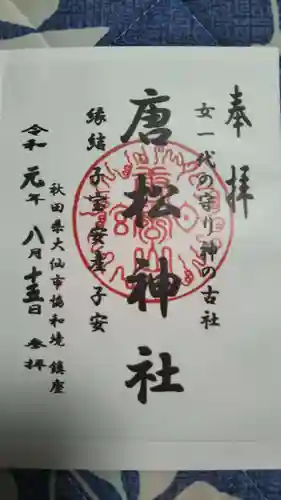 奉拝
女一代の守り神の古社
唐松神社
縁結子宝安産子安
秋田県大仙市協和境 鎮座
令和元年八月十五日 参拝